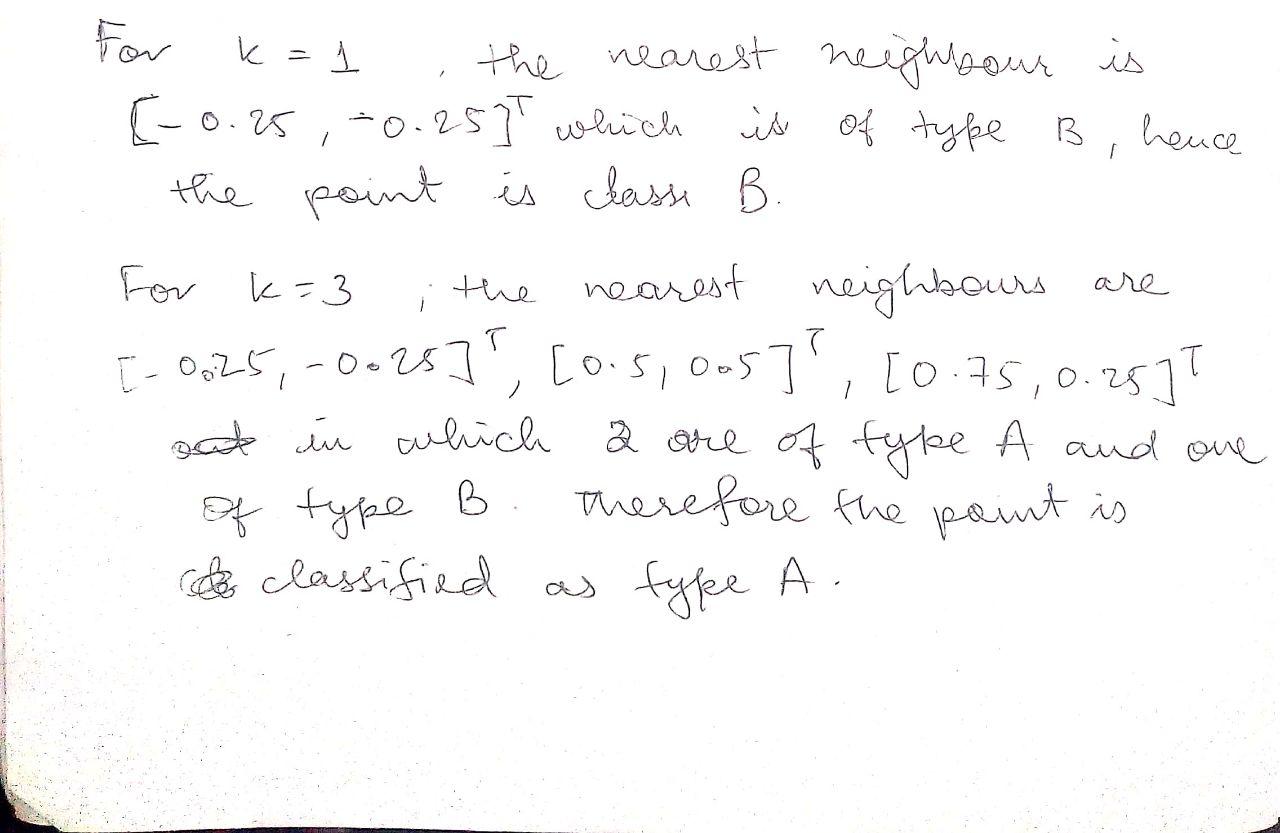 For k = 1 , the nearest neighbour is
[-0.25, -0.25]ᵀ which is of type B, hence
the point is class B.
For k=3 ; the nearest neighbours are
[-0.25, -0.25]ᵀ, [0.5, 0.5]ᵀ, [0.75, 0.25]ᵀ
in which 2 are of type A and one
of type B. Therefore the point is
classified as type A.